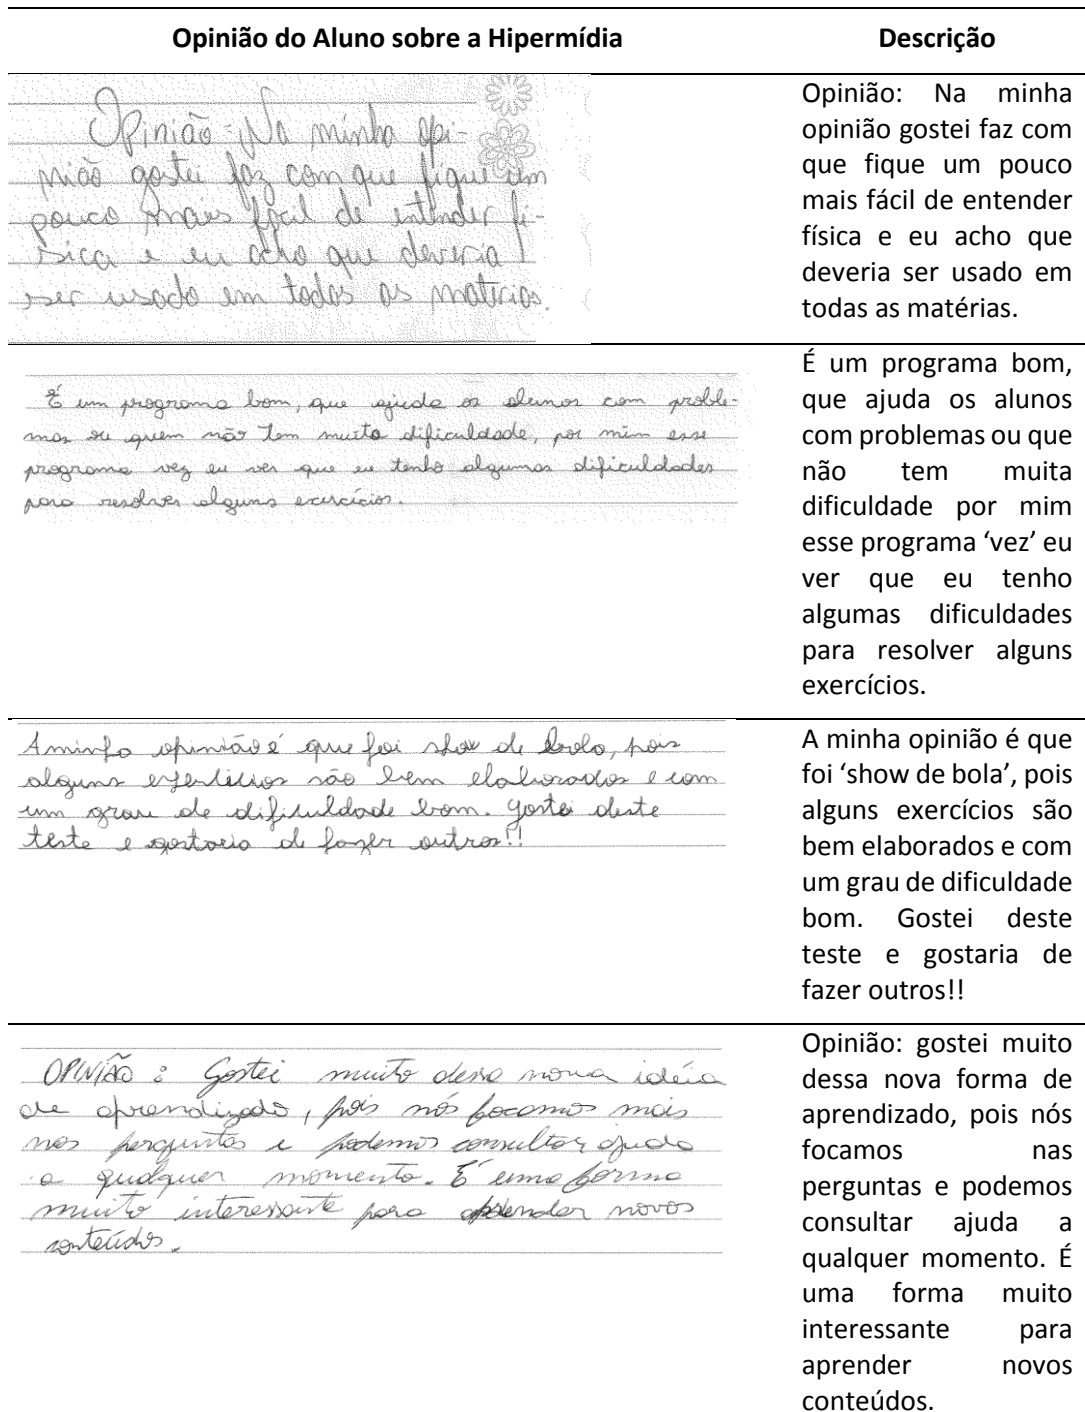 Opinião do Aluno sobre a Hipermídia
Descrição
Opinião - Na minha opi-
nião gostei faz com que fique um
pouco mais fácil de entender fí-
sica e eu acho que deveria
ser usado em todas as matérias.
Opinião: Na minha
opinião gostei faz com
que fique um pouco
mais fácil de entender
física e eu acho que
deveria ser usado em
todas as matérias.
É um programa bom, que ajuda os alunos com proble-
mas ou quem não tem muita dificuldade, por mim esse
programa vez eu ver que eu tenho algumas dificuldades
para resolver alguns exercícios.
É um programa bom,
que ajuda os alunos
com problemas ou que
não tem muita
dificuldade por mim
esse programa ‘vez’ eu
ver que eu tenho
algumas dificuldades
para resolver alguns
exercícios.
A minha opinião é que foi show de bola, pois
alguns exercícios são bem elaborados e com
um grau de dificuldade bom. Gostei deste
teste e gostaria de fazer outros!!
A minha opinião é que
foi ‘show de bola’, pois
alguns exercícios são
bem elaborados e com
um grau de dificuldade
bom. Gostei deste
teste e gostaria de
fazer outros!!
OPINIÃO : Gostei muito dessa nova idéia
de aprendizado, pois nós focamos mais
nas perguntas e podemos consultar ajuda
a qualquer momento. É uma forma
muito interessante para aprender novos
conteúdos.
Opinião: gostei muito
dessa nova forma de
aprendizado, pois nós
focamos nas
perguntas e podemos
consultar ajuda a
qualquer momento. É
uma forma muito
interessante para
aprender novos
conteúdos.